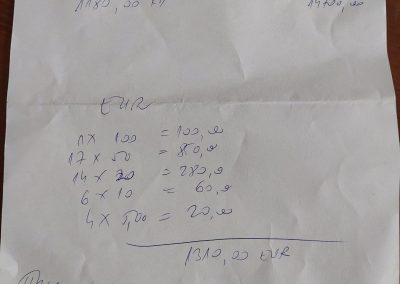 1180,00
EUR
1 x 100 = 100,00
17 x 50 = 850,00
14 x 20 = 280,00
6 x 10 = 60,00
4 x 5,00 = 20,00
1310,00 EUR